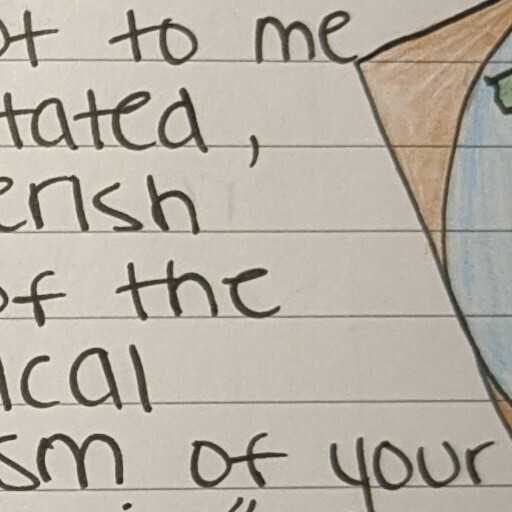 ot to me
tated,
erish
of the
ical
sm of your